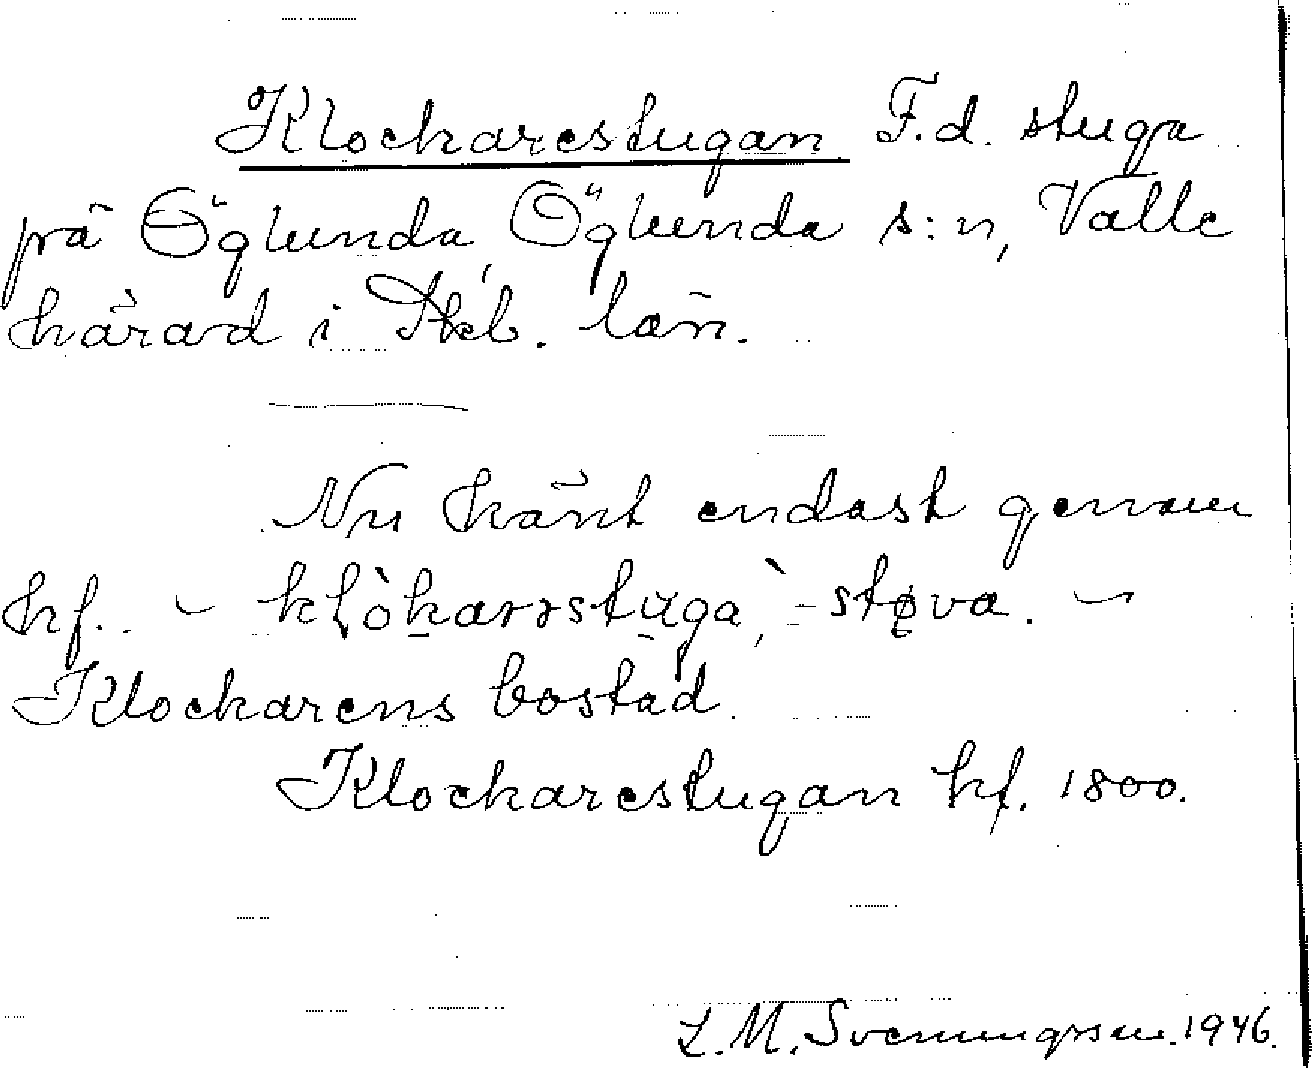 Klockarestugan F.d. stuga
på Öglunda, Öglunda s:n, Valle
härad i Skb. län.
Nu känt endast genom
kf. - klòkarrstùga, -støva. -
Klockarens bostad.
Klockarestugan kf. 1800.
L.M. Svenungsson. 1946.